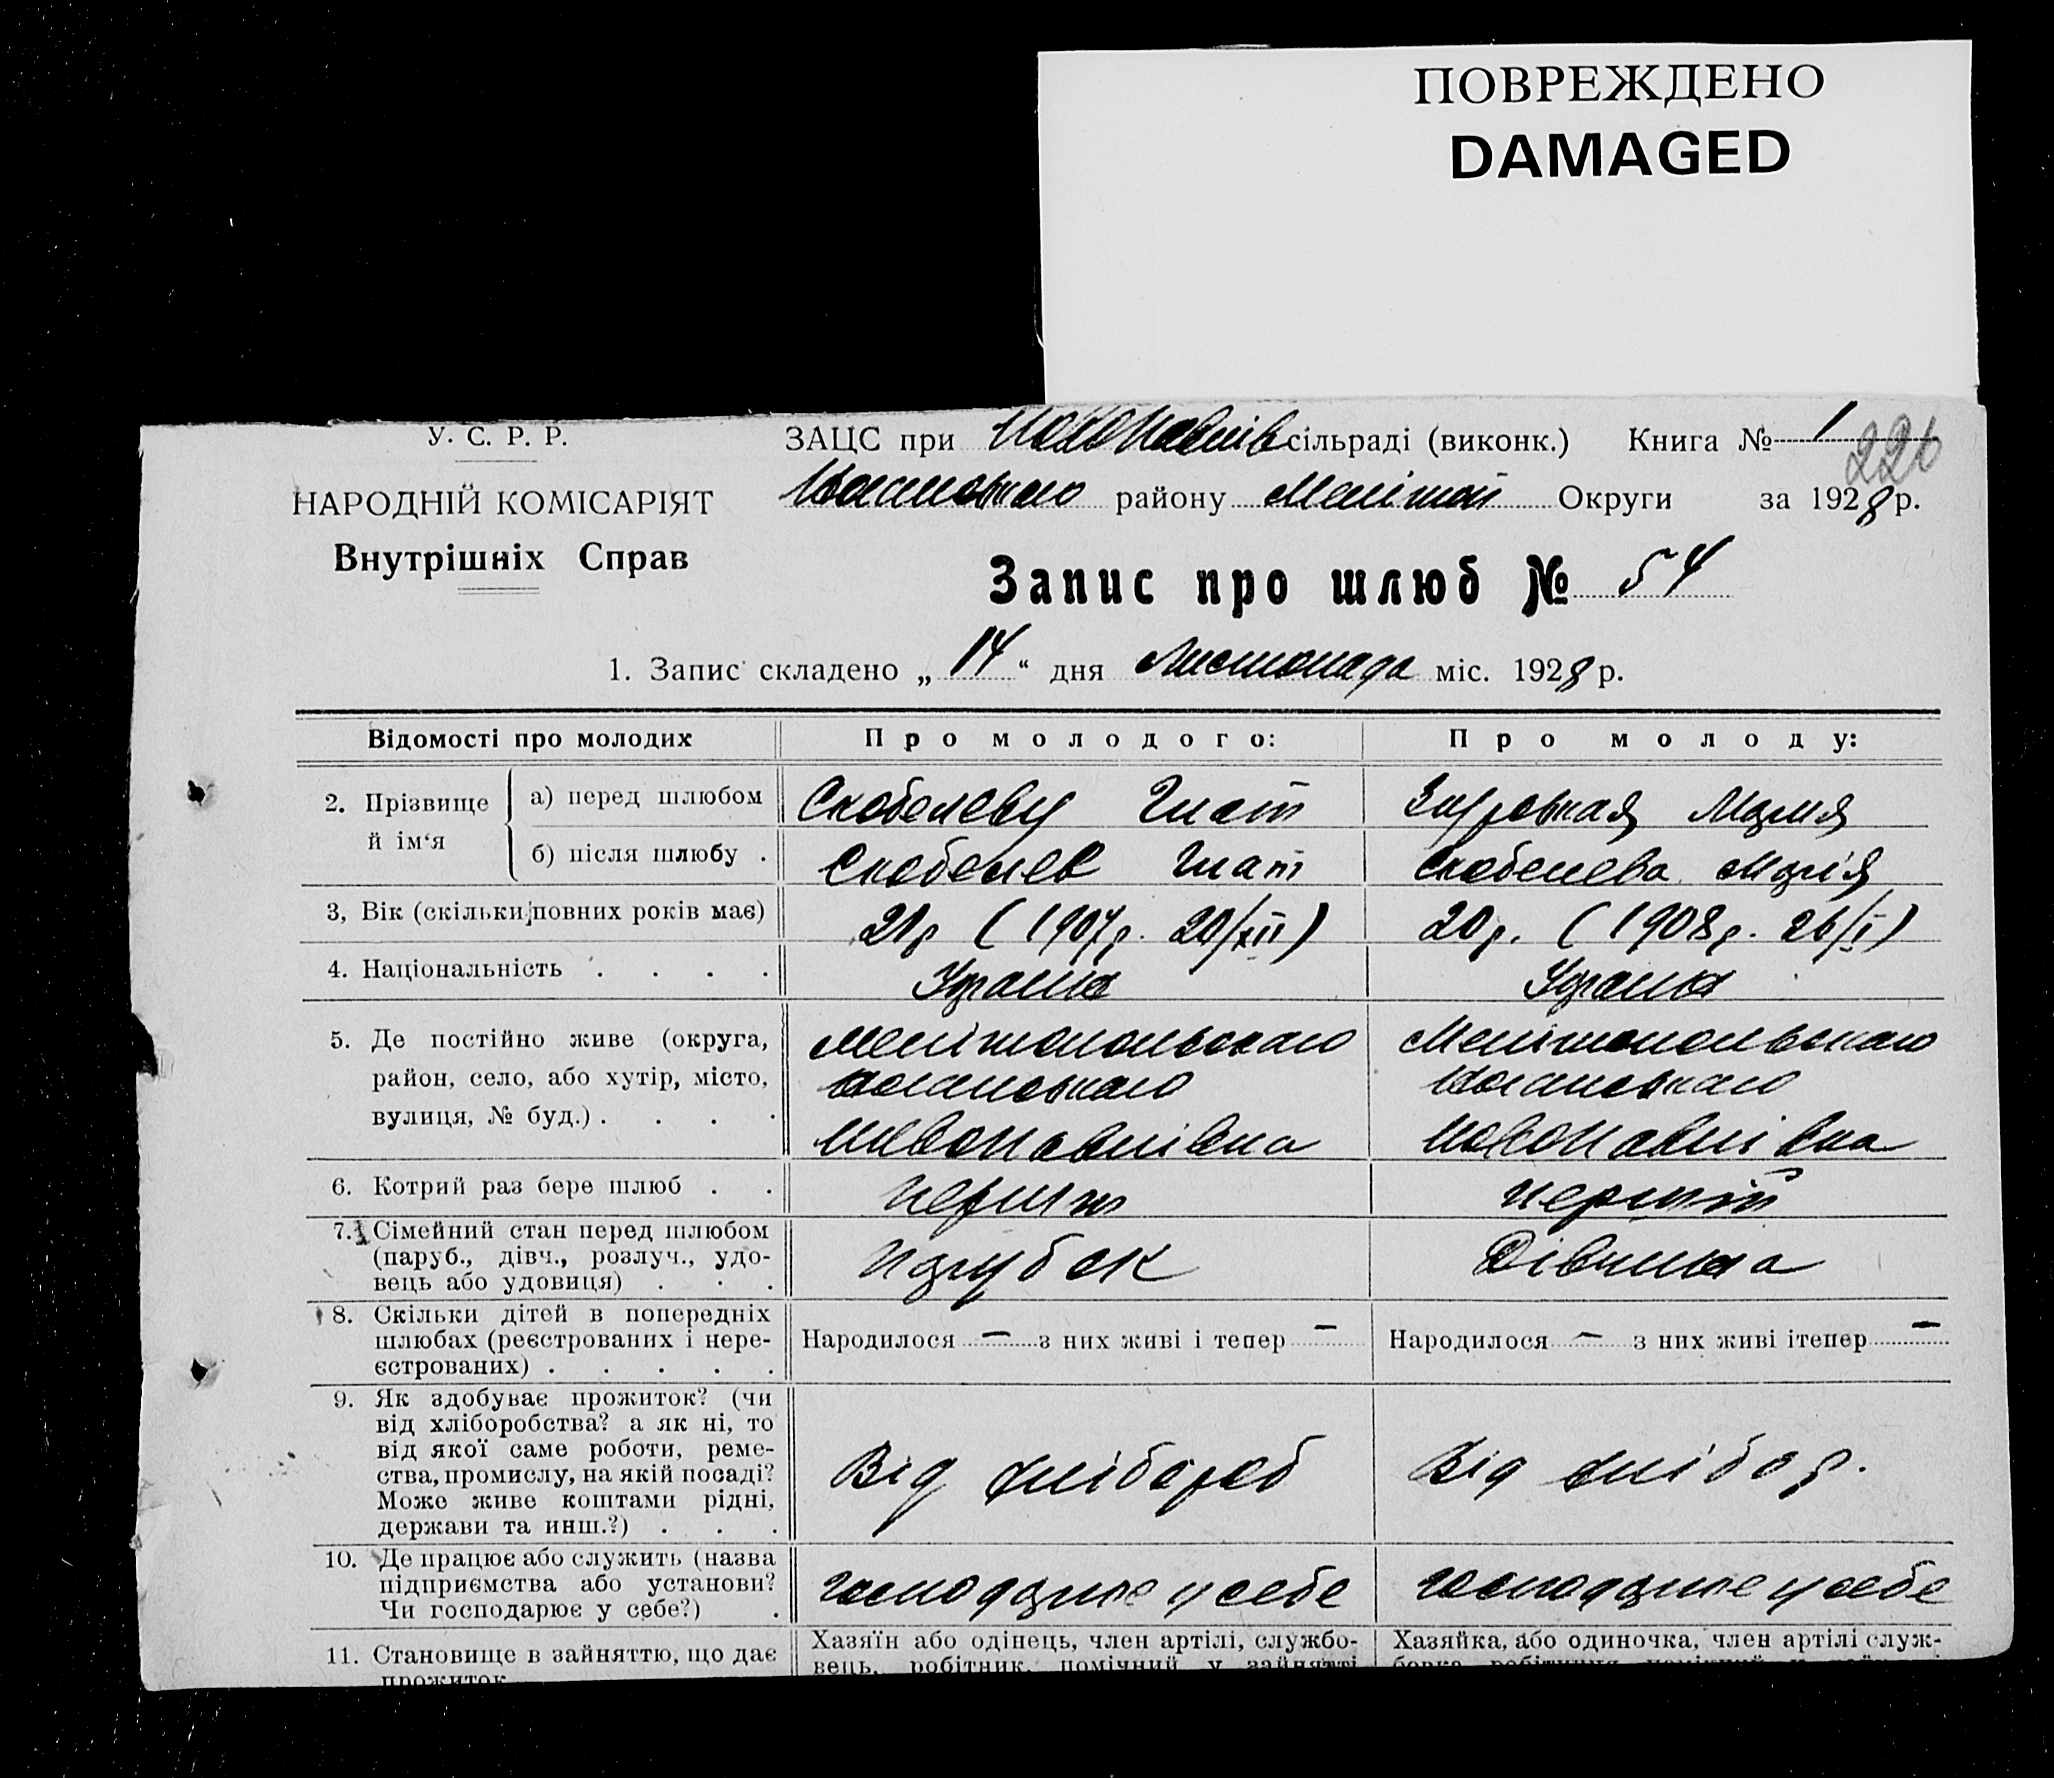 ПОВРЕЖДЕНО
DAMAGED
У. С. Р. Р.
НАРОДНІЙ КОМІСАРІЯТ
Внутрішніх Справ
ЗАЦС при Новопавлів сільраді (виконк.) Книга № 1
226
району Меліт Округи за 1928 р.
Запис про шлюб № 54
1. Запис складено „ 14 “ дня Листопада міс. 1928 р.
Відомості про молодих Про молодого: Про молоду:
2. Прізвище й ім‘я
а) перед шлюбом Скобелеву Гнат Мария
б) після шлюбу . Скобелев Гнат Скобелева Марія
3, Вік (скільки повних років має) 21 р (1907 р. 20/XII) 20 р. (1908 р. 26/I)
4. Національність . . . . Україна Україна
5. Де постійно живе (округа, Мелітопольського Мелітопольського
район, село, або хутір, місто,
вулиця, № буд.) . . . . Новопавлівка Новопавлівка
6. Котрий раз бере шлюб . . перший перший
7. Сімейний стан перед шлюбом
(паруб., дівч., розлуч., удо-
вець або удовиця) . . . Парубок Дівчина
8. Скільки дітей в попередніх
шлюбах (реєстрованих і нере-
єстрованих) . . . . .
Народилося — з них живі і тепер — Народилося — з них живі ітепер —
9. Як здобуває прожиток? (чи
від хліборобства? а як ні, то
від якої саме роботи, реме-
ства, промислу, на якій посаді?
Може живе коштами рідні,
держави та инш.?) . . .
Від хлібороб Від хлібор.
10. Де працює або служить (назва
підприємства або установи?
Чи господарює у себе?) .
господарює у себе господарює у себе
11. Становище в зайняттю, що дає
прожиток
Хазяїн або одінець, член артілі, службо-
вець, робітник, помічний у зайнятті
Хазяйка, або одиночка, член артілі служ-